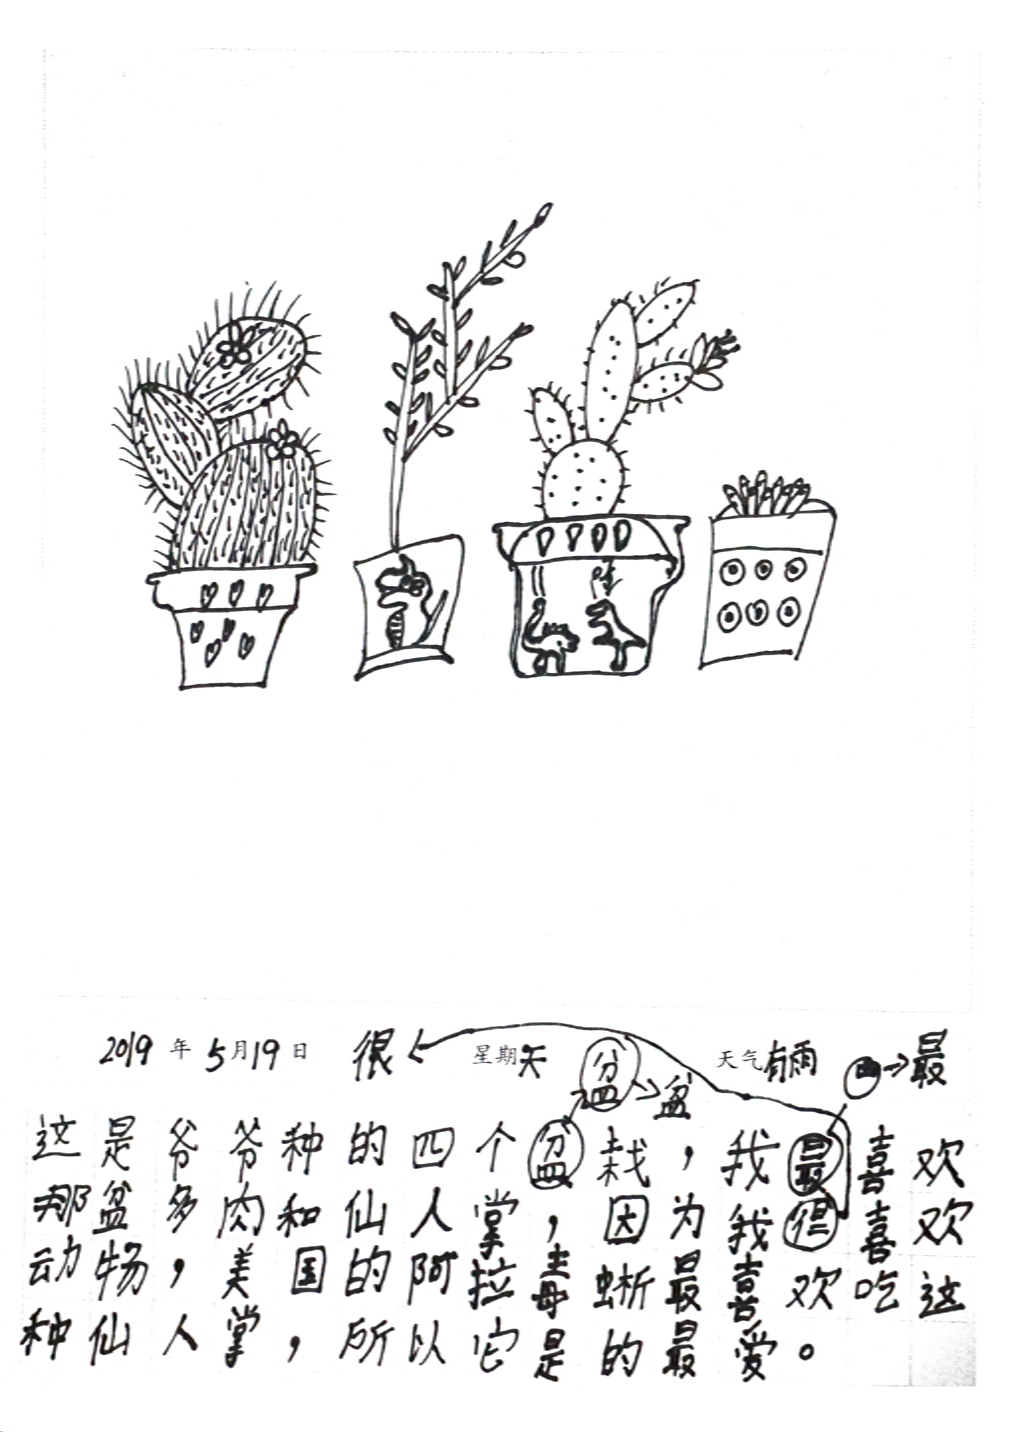 2019 年 5月19 日 很 星期天 天气有雨 最
盆 盆
这是爷爷种的四个盆栽，我最喜欢
那盆多肉和仙人掌，因为我很喜欢
动物，美国的阿拉毒蜥最喜欢吃这
种仙人掌，所以它是的最爱。